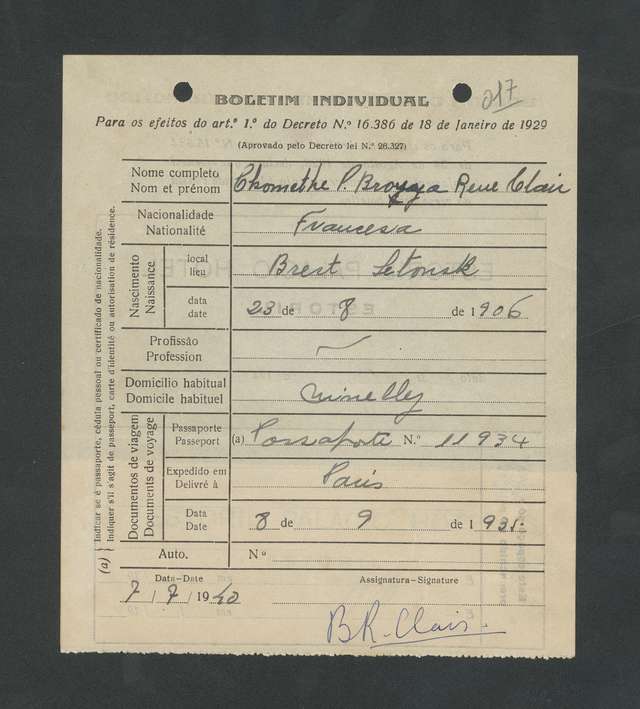 BOLETIM INDIVIDUAL
217
Para os efeitos do art.º 1.º do Decreto N.º 16.386 de 18 de Janeiro de 1929
(Aprovado pelo Decreto lei N.º 26.327)
Nome completo
Nom et prénom
Chomethe P. Rene Clair
Nacionalidade
Nationalité
Francesa
Nascimento
Naissance
local
lieu
Brest Letovsk
data
date
23 de 8 de 1906
Profissão
Profession
Domicilio habitual
Domicile habituel
Documentos de viagem
Documents de voyage
Passaporte
Passeport
(a) Passaporte N.º 11934
Expedido em
Delivré à
Paris
Data
Date
8 de 9 de 1935.
Auto.
Nº
(a) Indicar se é passaporte, cédula pessoal ou certificado de nacionalidade.
Indiquer s'il s'agit de passeport, carte d'identité ou autorisation de résidence.
Data—Date
7 / 7 / 1940
Assignatura—Signature
B R. Clair.